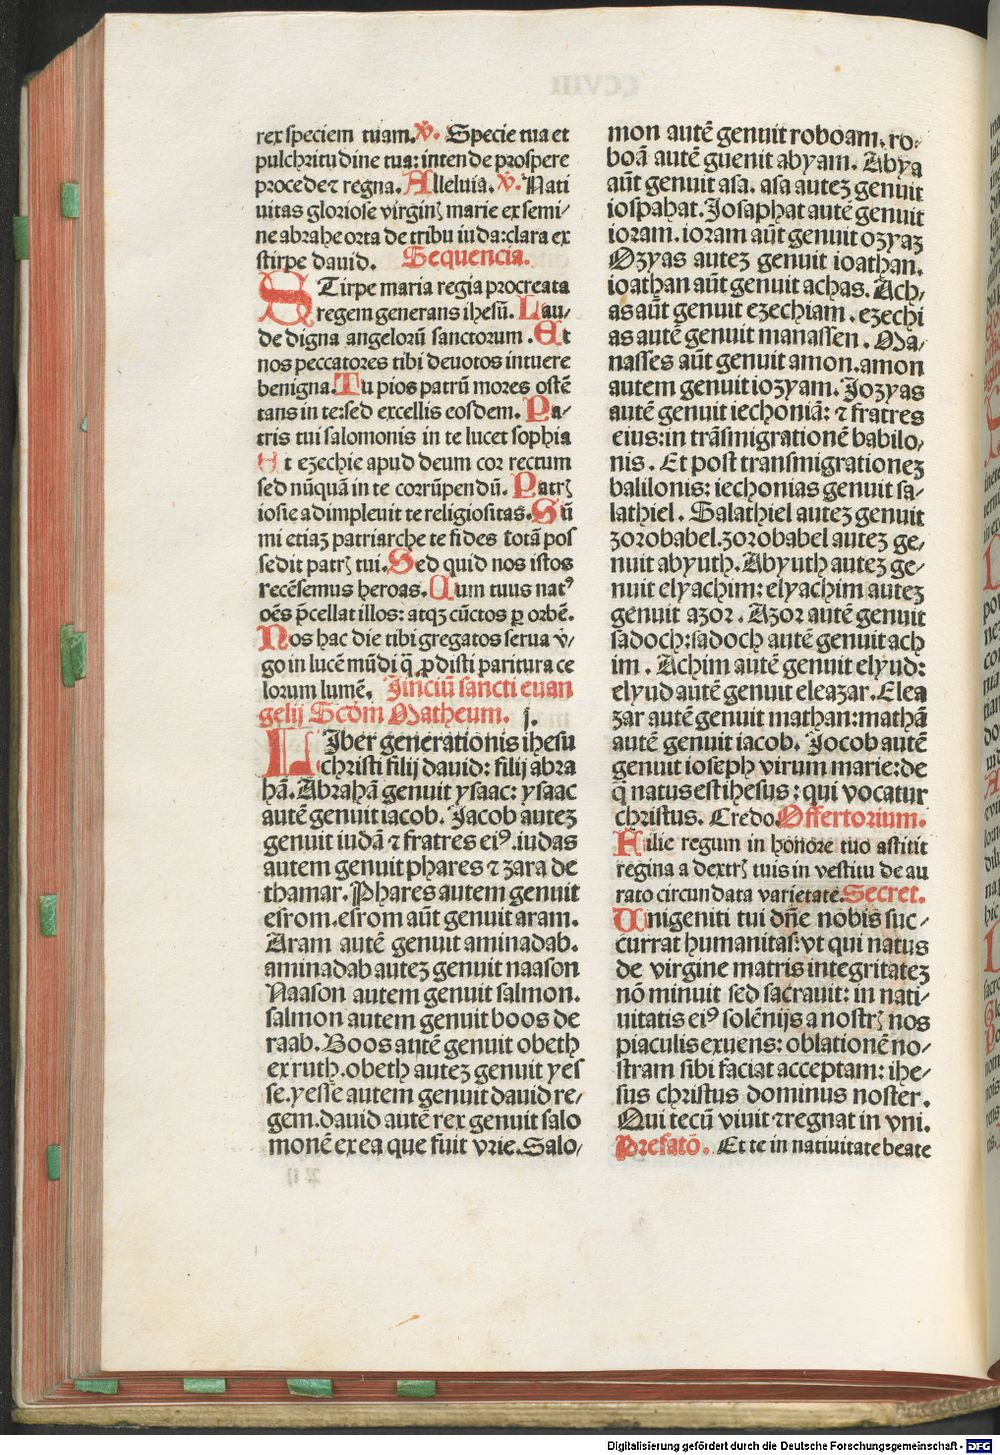 rex speciem tuam. ℣. Specie tua et
pulchritudine tua: intende prospere
procede ⁊ regna. Alleluia. ℣. Nati
uitas gloriose virginꝭ marie ex semi⸗
ne abrahe orta de tribu iuda: clara ex
stirpe dauid. Sequencia.
STirpe maria regia procreata
regem generans ihesū. Lau⸗
de digna angelorū sanctorum. Et
nos peccatores tibi deuotos intuere
benigna. Tu pios patrū mores ostē
tans in te: sed excellis eosdem. Pa⸗
tris tui salomonis in te lucet sophia
Et ezechie apud deum cor rectum
sed nūquā in te corrūpendū. Patrꝭ
iosie adimpleuit te religiositas. Sū
mi etiaꝫ patriarche te fides totā pos
sedit patrꝭ tui. Sed quid nos istos
recēsemus heroas. Qum tuus natꝰ
oēs p̄cellat illos: atqꝫ cūctos ꝑ orbē.
Nos hac die tibi gregatos serua v⸗
go in lucē mūdi q̄ ꝓdisti paritura ce
lorum lumē. Jniciū sancti euan
gelij Scdōm Matheum. j.
LJber generationis ihesu
christi filij dauid: filij abra
hā. Abrahā genuit ysaac: ysaac
autē genuit iacob. Jacob auteꝫ
genuit iudā ⁊ fratres eiꝰ. iudas
autem genuit phares ⁊ zara de
thamar. Phares autem genuit
esrom. esrom aūt genuit aram.
Aram autē genuit aminadab.
aminadab auteꝫ genuit naason
Naason autem genuit salmon.
salmon autem genuit boos de
raab. Boos autē genuit obeth
ex ruth. obeth auteꝫ genuit yes
se. yesse autem genuit dauid re⸗
gem. dauid autē rex genuit salo
monē ex ea que fuit vrie. Salo⸗
mon autē genuit roboam. ro⸗
boā autē guenit abyam. Abya
aūt genuit asa. asa auteꝫ genuit
iospahat. Josaphat autē genuit
ioram. ioram aūt genuit ozyaꝫ
Ozyas auteꝫ genuit ioathan.
ioathan aūt genuit achas. Ach⸗
as aūt genuit ezechiam. ezechi
as autē genuit manassen. Ma⸗
nasses aūt genuit amon. amon
autem genuit iozyam. Jozyas
autē genuit iechoniā: ⁊ fratres
eius: in trāsmigrationē babilo⸗
nis. Et post transmigrationeꝫ
balilonis: iechonias genuit sa⸗
lathiel. Salathiel auteꝫ genuit
zorobabel. zorobabel auteꝫ ge⸗
nuit abyuth. Abyuth auteꝫ ge⸗
nuit elyachim: elyachim auteꝫ
genuit azor. Azor autē genuit
sadoch: sadoch autē genuit ach
im. Achim autē genuit elyud:
elyud autē genuit eleazar. Elea
zar autē genuit mathan: mathā
autē genuit iacob. Jocob autē
genuit ioseph virum marie: de
q̄ natus est ihesus: qui vocatur
christus. Credo. Offertorium.
Filie regum in honore tuo astitit
regina a dextrꝭ tuis in vestitu de au
rato circundata varietate. Secret.
Vnigeniti tui dn̄e nobis suc⸗
currat humanitas: vt qui natus
de virgine matris integritateꝫ
nō minuit sed sacrauit: in nati⸗
uitatis eiꝰ solēnijs a nostrꝭ nos
piaculis exuens: oblationē no⸗
stram sibi faciat acceptam: ihe⸗
sus christus dominus noster.
Qui tecū viuit ⁊ regnat in vni.
Prefatō. Et te in natiuitate beate
Digitalisierung gefördert durch die Deutsche Forschungsgemeinschaft - DFG